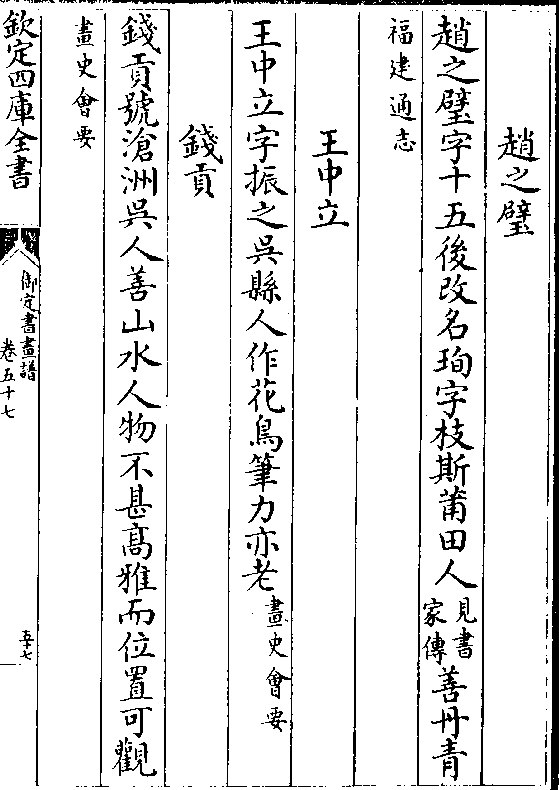 趙之璧
趙之璧字十五後改名珣字枝斯莆田人見書家傳善丹青
福建通志
王中立
王中立字振之吳縣人作花鳥筆力亦老畫史會要
錢貢
錢貢號滄洲吳人善山水人物不甚高雅而位置可觀
畫史會要
欽定四庫全書
御定書畫譜
卷五十七
五十七